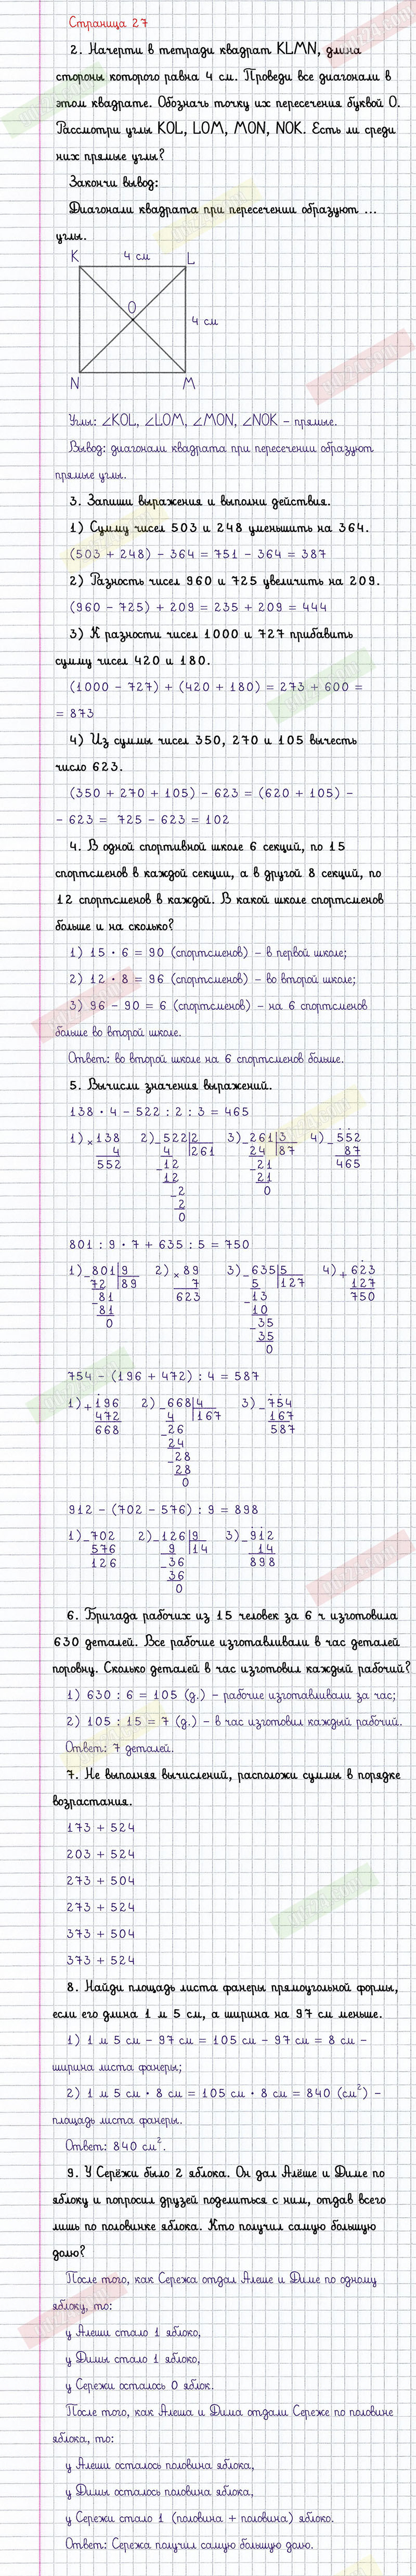 Страница 27
2. Начерти в тетради квадрат KLMN, длина
стороны которого равна 4 см. Проведи все диагонали в
этом квадрате. Обозначь точку их пересечения буквой О.
Рассмотри углы KOL, LOM, MON, NOK. Есть ли среди
них прямые углы?
Закончи вывод:
Диагонали квадрата при пересечении образуют ...
углы.
K 4 см L
O
4 см
N M
Углы: ∠KOL, ∠LOM, ∠MON, ∠NOK – прямые.
Вывод: диагонали квадрата при пересечении образуют
прямые углы.
3. Запиши выражения и выполни действия.
1) Сумму чисел 503 и 248 уменьшить на 364.
(503 + 248) – 364 = 751 – 364 = 387
2) Разность чисел 960 и 725 увеличить на 209.
(960 – 725) + 209 = 235 + 209 = 444
3) К разности чисел 1000 и 727 прибавить
сумму чисел 420 и 180.
(1000 – 727) + (420 + 180) = 273 + 600 =
= 873
4) Из суммы чисел 350, 270 и 105 вычесть
число 623.
(350 + 270 + 105) – 623 = (620 + 105) –
– 623 = 725 – 623 = 102
4. В одной спортивной школе 6 секций, по 15
спортсменов в каждой секции, а в другой 8 секций, по
12 спортсменов в каждой. В какой школе спортсменов
больше и на сколько?
1) 15 · 6 = 90 (спортсменов) – в первой школе;
2) 12 · 8 = 96 (спортсменов) – во второй школе;
3) 96 – 90 = 6 (спортсменов) – на 6 спортсменов
больше во второй школе.
Ответ: во второй школе на 6 спортсменов больше.
5. Вычисли значения выражений.
138 · 4 – 522 : 2 : 3 = 465
1) × 138 2) – 522 2 3) – 261 3 4) – 552
4 4 261 24 87 87
552 – 12 – 21 465
12 21
– 2 0
2
0
801 : 9 · 7 + 635 : 5 = 750
1) – 801 9 2) × 89 3) – 635 5 4) + 623
72 89 7 5 127 127
– 81 623 – 13 750
81 10
0 – 35
35
0
754 – (196 + 472) : 4 = 587
1) + 196 2) – 668 4 3) – 754
472 4 167 167
668 – 26 587
24
– 28
28
0
912 – (702 – 576) : 9 = 898
1) – 702 2) – 126 9 3) – 912
576 9 14 14
126 – 36 898
36
0
6. Бригада рабочих из 15 человек за 6 ч изготовила
630 деталей. Все рабочие изготавливали в час деталей
поровну. Сколько деталей в час изготовил каждый рабочий?
1) 630 : 6 = 105 (д.) – рабочие изготавливали за час;
2) 105 : 15 = 7 (д.) – в час изготовил каждый рабочий.
Ответ: 7 деталей.
7. Не выполняя вычислений, расположи суммы в порядке
возрастания.
173 + 524
203 + 524
273 + 504
273 + 524
373 + 504
373 + 524
8. Найди площадь листа фанеры прямоугольной формы,
если его длина 1 м 5 см, а ширина на 97 см меньше.
1) 1 м 5 см – 97 см = 105 см – 97 см = 8 см –
ширина листа фанеры;
2) 1 м 5 см · 8 см = 105 см · 8 см = 840 (см²) –
площадь листа фанеры.
Ответ: 840 см².
9. У Серёжи было 2 яблока. Он дал Алёше и Диме по
яблоку и попросил друзей поделиться с ним, отдав всего
лишь по половинке яблока. Кто получил самую большую
долю?
После того, как Сережа отдал Алеше и Диме по одному
яблоку, то:
у Алеши стало 1 яблоко,
у Димы стало 1 яблоко,
у Сережи осталось 0 яблок.
После того, как Алеша и Дима отдали Сереже по половине
яблока, то:
у Алеши осталось половина яблока,
у Димы осталось половина яблока,
у Сережи стало 1 (половина + половина) яблоко.
Ответ: Сережа получил самую большую долю.